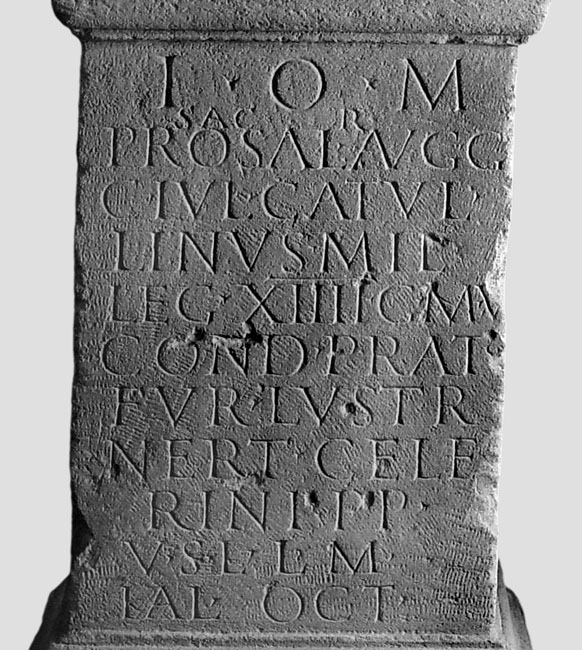 I · O · M
SAC R
PRO SAL AVGG
C IVL CATVL
LINVS MIL
LEG XIIII G M V
COND PRAT
FVR LVSTR
NERT CELE
RINI P P
V S L L M
OCT